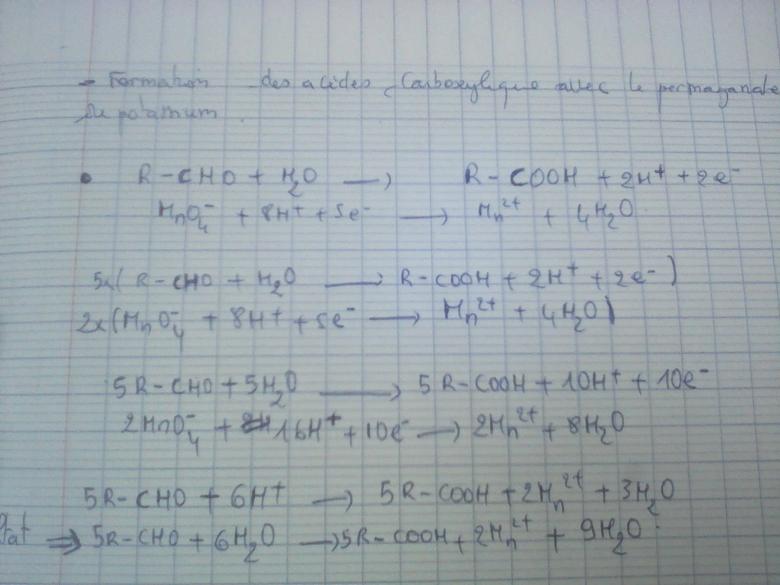 - Formation des acides Carboxylique avec le permaganate
du potassium.
• R-CHO + H₂O → R-COOH + 2H⁺ + 2e⁻
MnO₄⁻ + 8H⁺ + 5e⁻ → Mn²⁺ + 4H₂O
5x( R-CHO + H₂O → R-COOH + 2H⁺ + 2e⁻ )
2x(MnO₄⁻ + 8H⁺ + 5e⁻ → Mn²⁺ + 4H₂O)
5R-CHO + 5H₂O → 5R-COOH + 10H⁺ + 10e⁻
2MnO₄⁻ + 16H⁺ + 10e⁻ → 2Mn²⁺ + 8H₂O
5R-CHO + 6H⁺ → 5R-COOH + 2Mn²⁺ + 3H₂O
⇒ 5R-CHO + 6H₂O → 5R-COOH + 2Mn²⁺ + 9H₂O